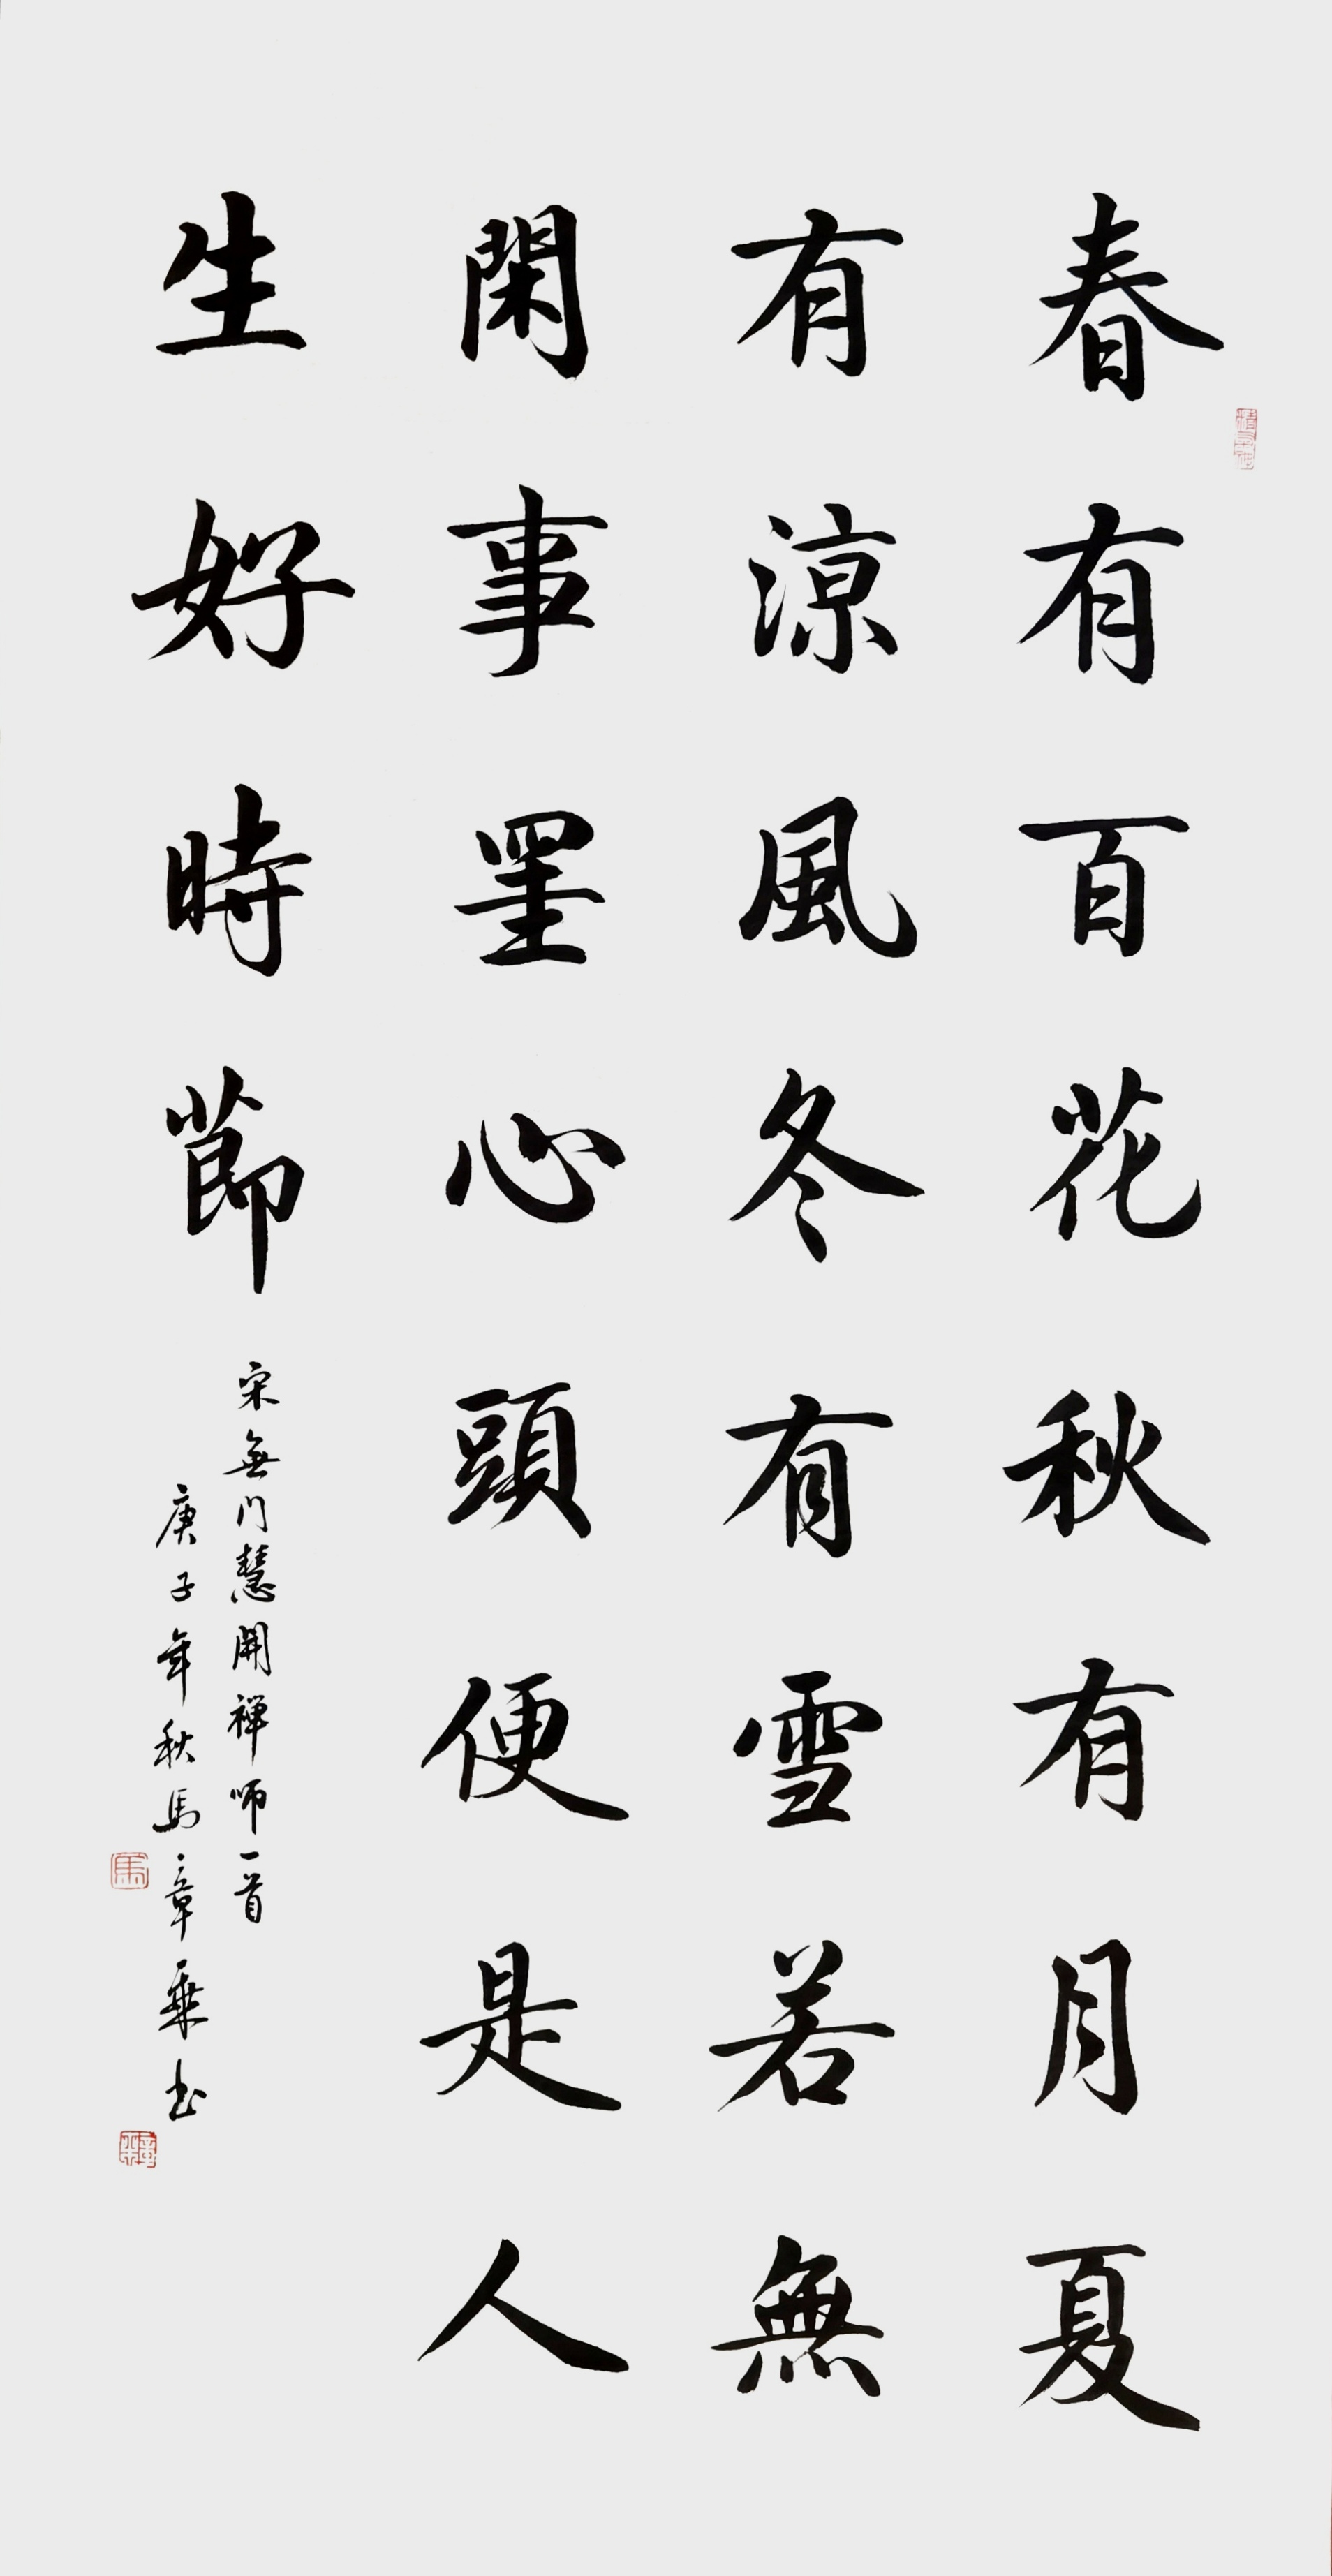 春有百花秋有月夏
有涼風冬有雪若無
閑事罣心頭便是人
生好時節
宋無門慧開禅师一首
庚子年秋馬章乘书
馬